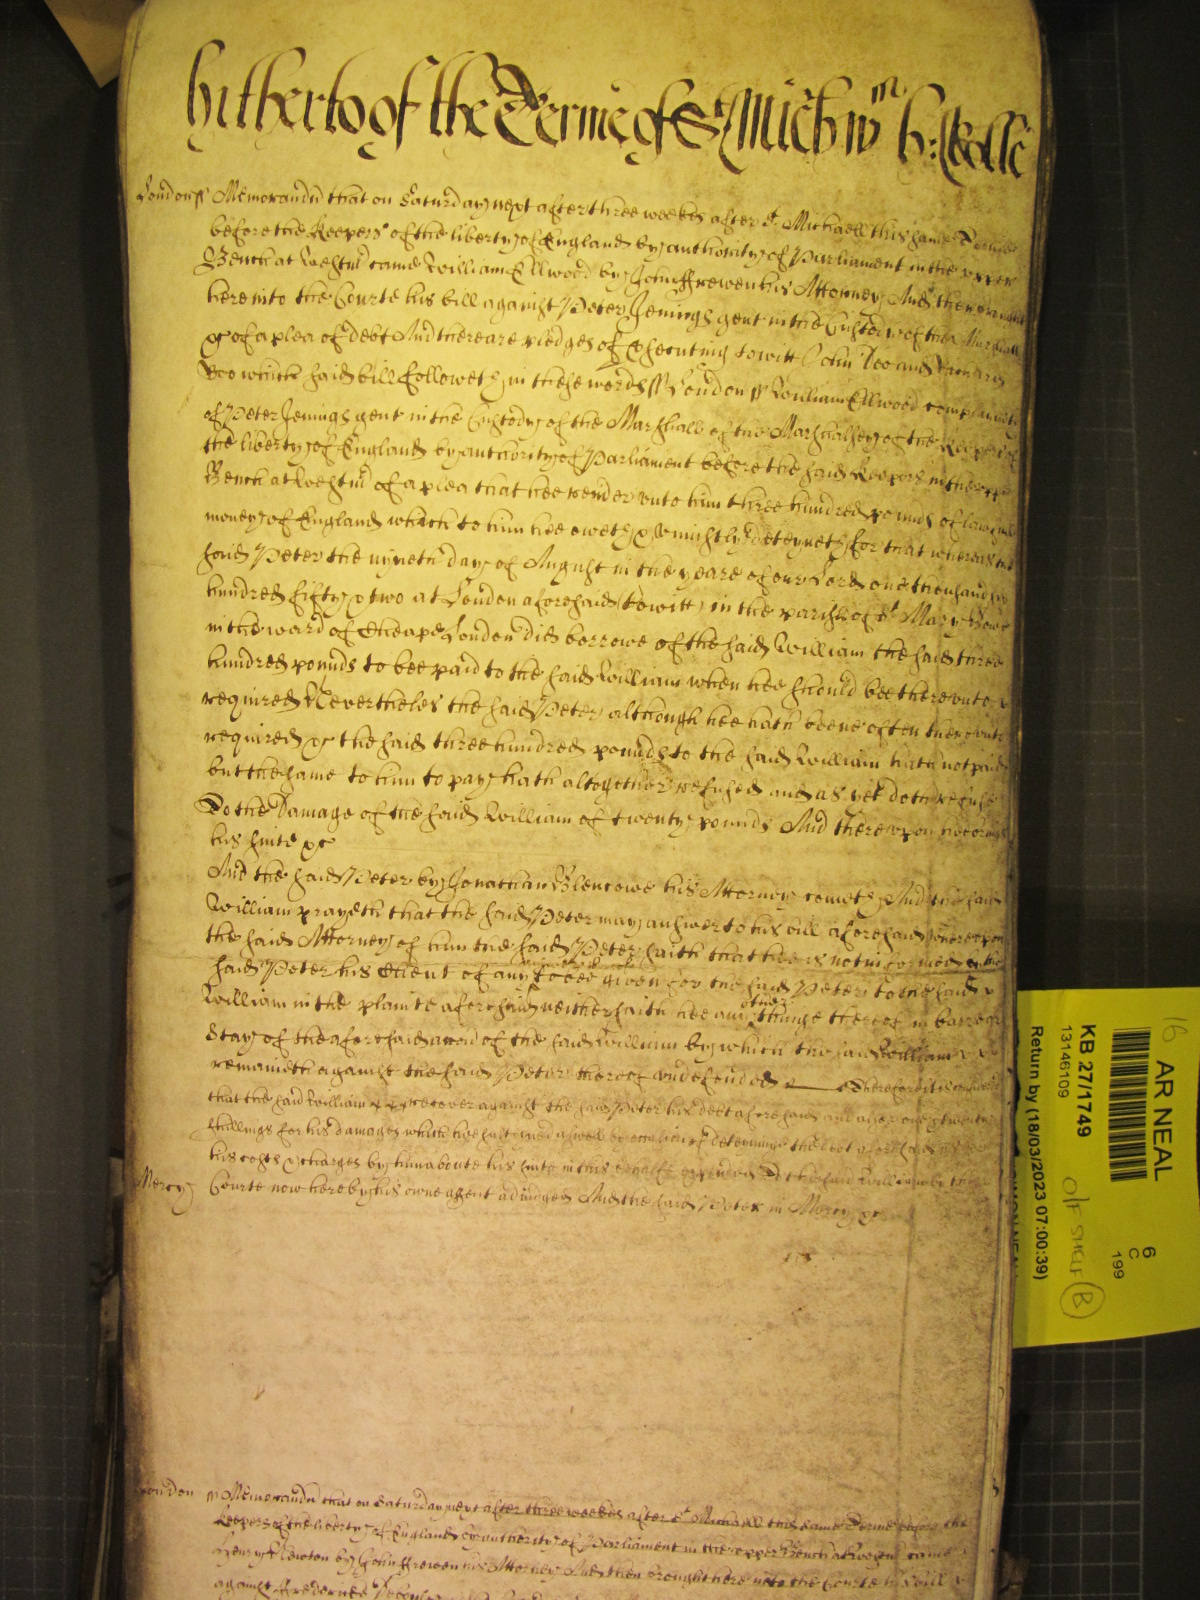 hitherto of the Terme of St Mich w^m h: Rolle
London ss Memorandu that on Saturday next after three weekes after St Michaell this same Terme
before the Keepers of the liberty of England by authority of Parliament in the upper
Bench at Westmr came William Ellwood by John Frewen his Attorney And then brought
here into the Courte his bill against Peter Jenings gent in the Custody of the Marshall
&c of a plea of debt And there are pledges of prosecuting to witt John Doo and Richard
Roo which said bill followeth in these words ss London ss William Ellwood complaineth
of Peter Jenings gent in the Custody of the Marshall of the Marshalsey of the Keepers of
the liberty of England by authority of Parliament before the said Keepers in the upper
Bench at Westmr of a plea that hee render unto him three hundred pounds of lawfull
money of England which to him hee oweth & uniustly deteyneth for that whereas the
said Peter the nyneth day of August in the yeare of our Lord one thousand six
hundred fifty & two at London aforesaid (to witt) in the parish of St Mary Bowe
in the ward of Cheape London did borrowe of the said William the said three
hundred pounds to bee paid to the said William when hee should bee thereunto
required Neverthelesse the said Peter although hee hath beene often thereunto
required &c the said three hundred pounds to the said William hath not paid
but the same to him to pay hath altogether refused and as yet doth refuse
To the Damage of the said William of twenty pounds And thereupon hee brings
his suite &c
And the said Peter by Jonathan Blencowe his Attorney cometh And the said
William prayeth that the said Peter may answer to his bill aforesaid whereupon
the said Attorney of him the said Peter saith that hee is not informed by the
said Peter his Client of any answer to bee given for the said Peter to the said
William in the plainte aforesaid neither saith hee any other thinge thereof in barre or
Stay of the aforesaid accon of the said William by which the said William
remaineth against the said Peter thereof undefended Therefore it is considered
that the said William recover against the said Peter his debt aforesaid and alsoe one & twenty
shillings for his damages which hee sustained aswell by occasion of deteyninge the debt aforesaid as for
his costs & charges by him aboute his suite in this behalfe expended to the said William by the
Mercy Courte now here by his owne assent adiudged And the said Peter in Mercy &c
London ss Memorandu that on Saturday next after three weekes after St Michaell this same Terme before the
Keepers of the liberty of England by authority of Parliament in the upper Bench at Westmr came
Henry Newton by John Frewen his Attorney And then brought here into the Courte his bill
against Fredericke
16
AR NEAL
6
C
199
KB 27/1749
13146109
O/F SHELF B
Return by (18/03/2023 07:00:39)